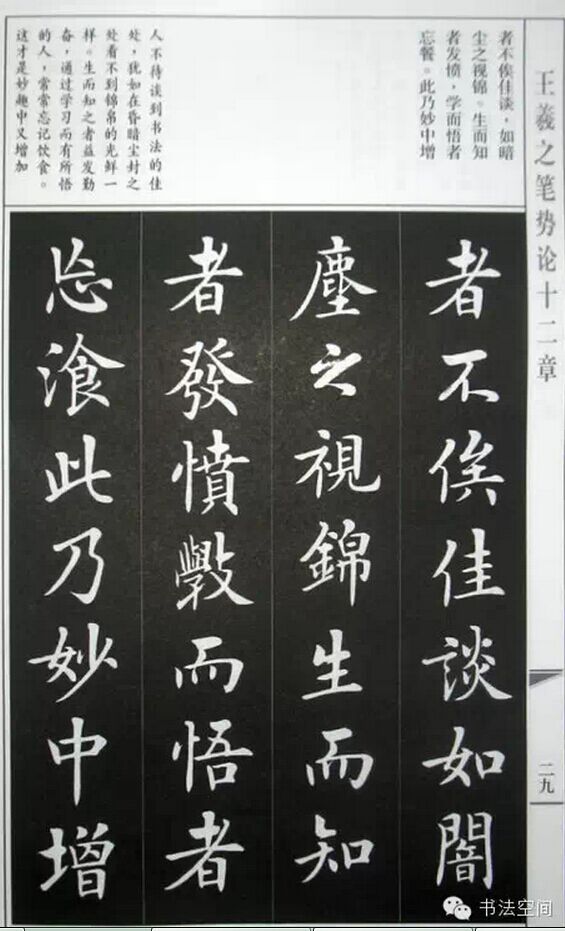 王羲之笔势论十二章
二九
者不俟佳谈，如暗
尘之视锦。生而知
者发愤，学而悟者
忘餐。此乃妙中增
人不待谈到书法的佳
处，犹如在昏暗尘封之
处看不到锦帛的光鲜一
样。生而知之者益发勤
奋，通过学习而有所悟
的人，常常忘记饮食。
这才是妙趣中又增加
者不俟佳談如闇
塵之視錦生而知
者發憤斅而悟者
忘飡此乃妙中增
书法空间